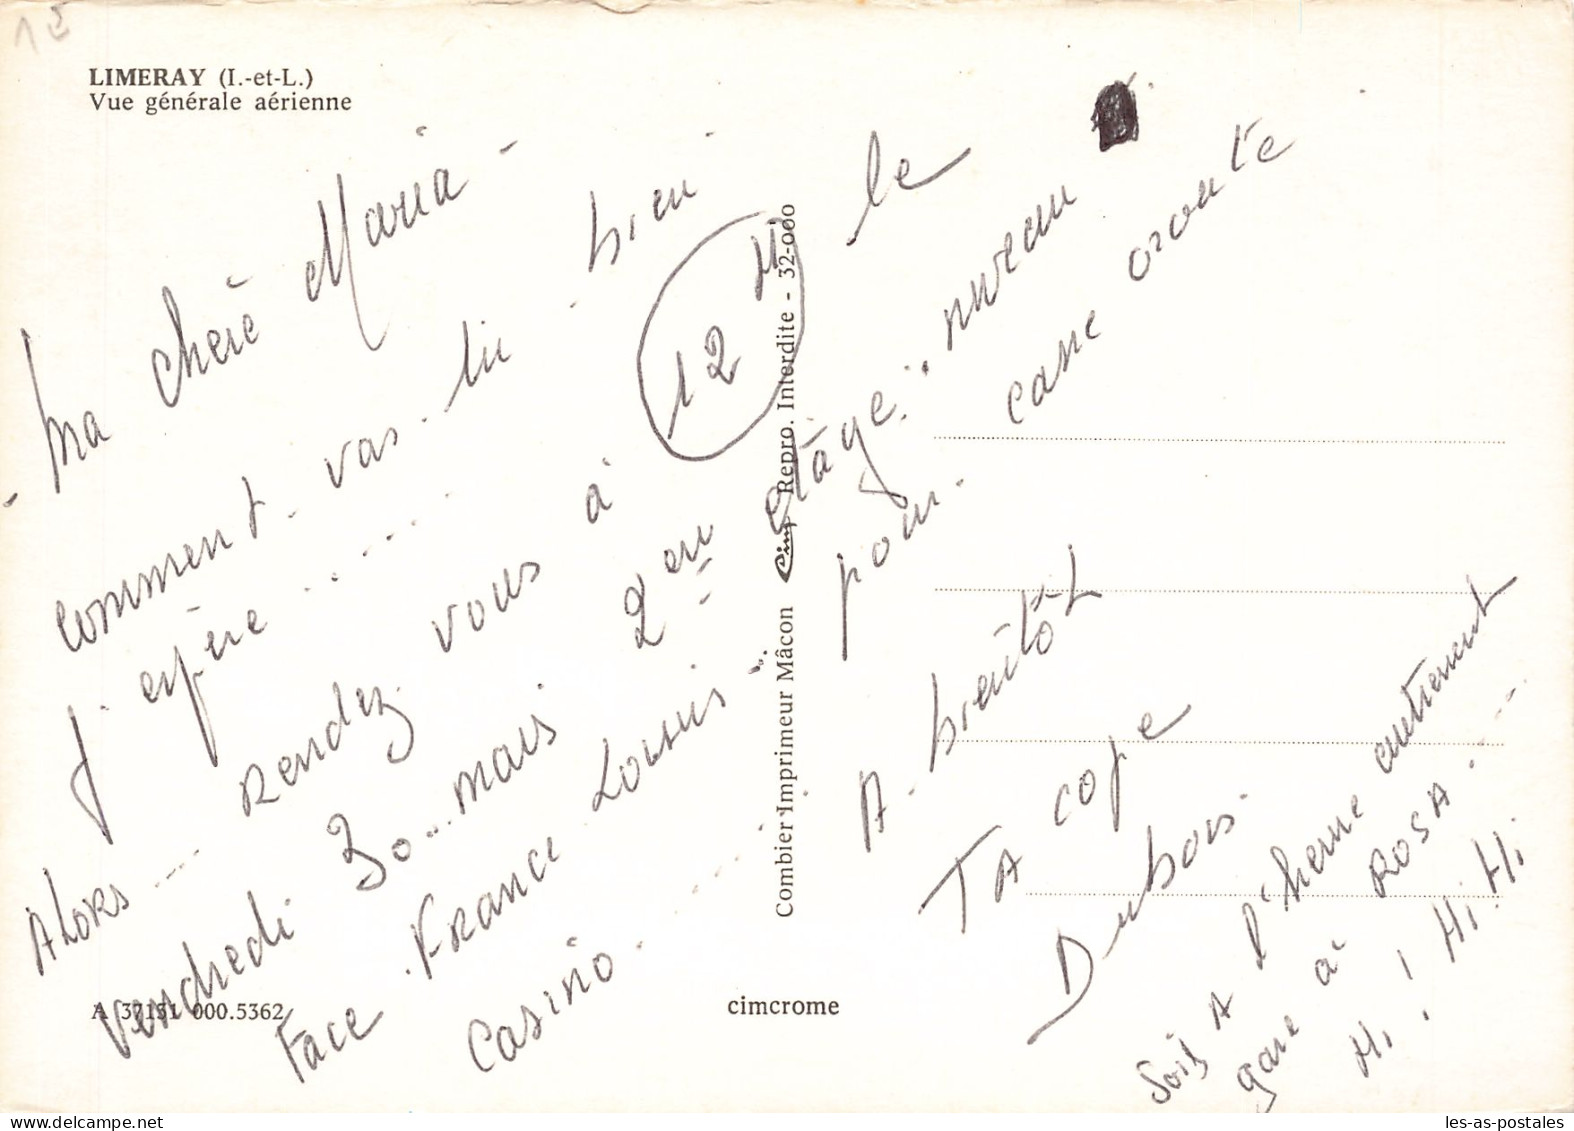 15
LIMERAY (I.-et-L.)
Vue générale aérienne
Ma chère Maria
comment vas-tu bien
j'espère
Alors rendez vous à 12 H le
vendredi 30 mais 2 en étage. niveau
Face France Loisirs pour
Casino
A bientôt
TA cope
Dubois
Soit A l'heure autrement
gare à ROSA
Hi ! Hi. Hi
Combier Imprimeur Mâcon Cim Repro. Interdite - 32-000
A 37131 000.5362
cimcrome
les-as-postales